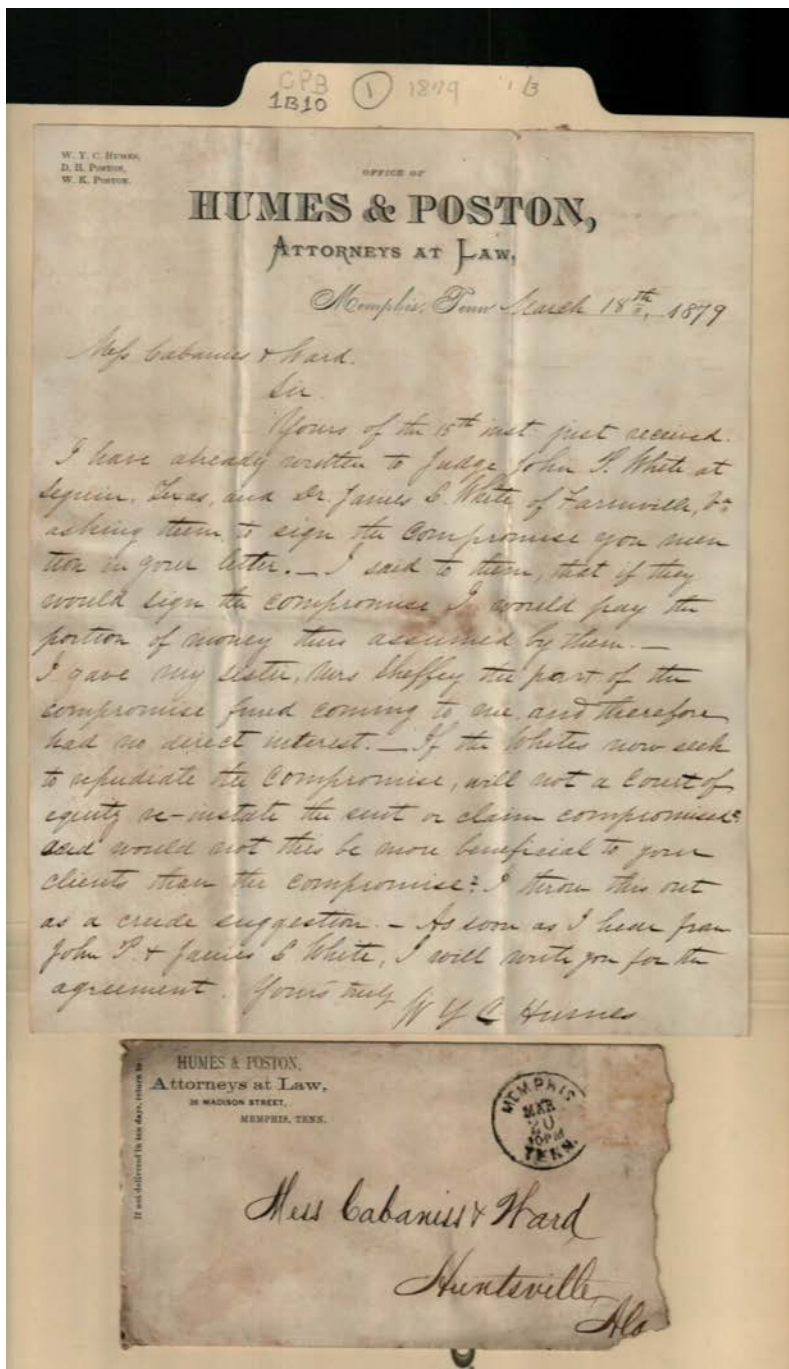 CPB
1B10 1 1879 1/3
W. Y. C. HUMES,
D. H. POSTON,
W. K. POSTON.
OFFICE OF
HUMES & POSTON,
ATTORNEYS AT LAW,
Memphis, Tenn March 18th, 1879
Mess Cabaniss & Ward.
Sir
Yours of the 15th inst just received.
I have already written to Judge John P. White at
Seguin, Texas, and Dr. James C. White of Farmville, Va
asking them to sign the compromise you men
tion in your letter. — I said to them, that if they
would sign the compromise I would pay the
portion of money thus assumed by them. —
I gave my sister, Mrs Sheffey the part of the
compromise fund coming to me, and therefore
had no direct interest. — If the Whites now seek
to repudiate the compromise, will not a Court of
equity re-instate the suit or claim compromised?
and would not this be more beneficial to your
clients than the compromise? I throw this out
as a crude suggestion. — As soon as I hear from
John P. & James C White, I will write you for the
agreement. Yours truly
W Y C Humes
If not delivered in ten days, return to
HUMES & POSTON,
Attorneys at Law,
MADISON STREET,
MEMPHIS, TENN.
MEMPHIS
MAR
20
PM
TENN.
Mess Cabaniss & Ward
Huntsville
Ala